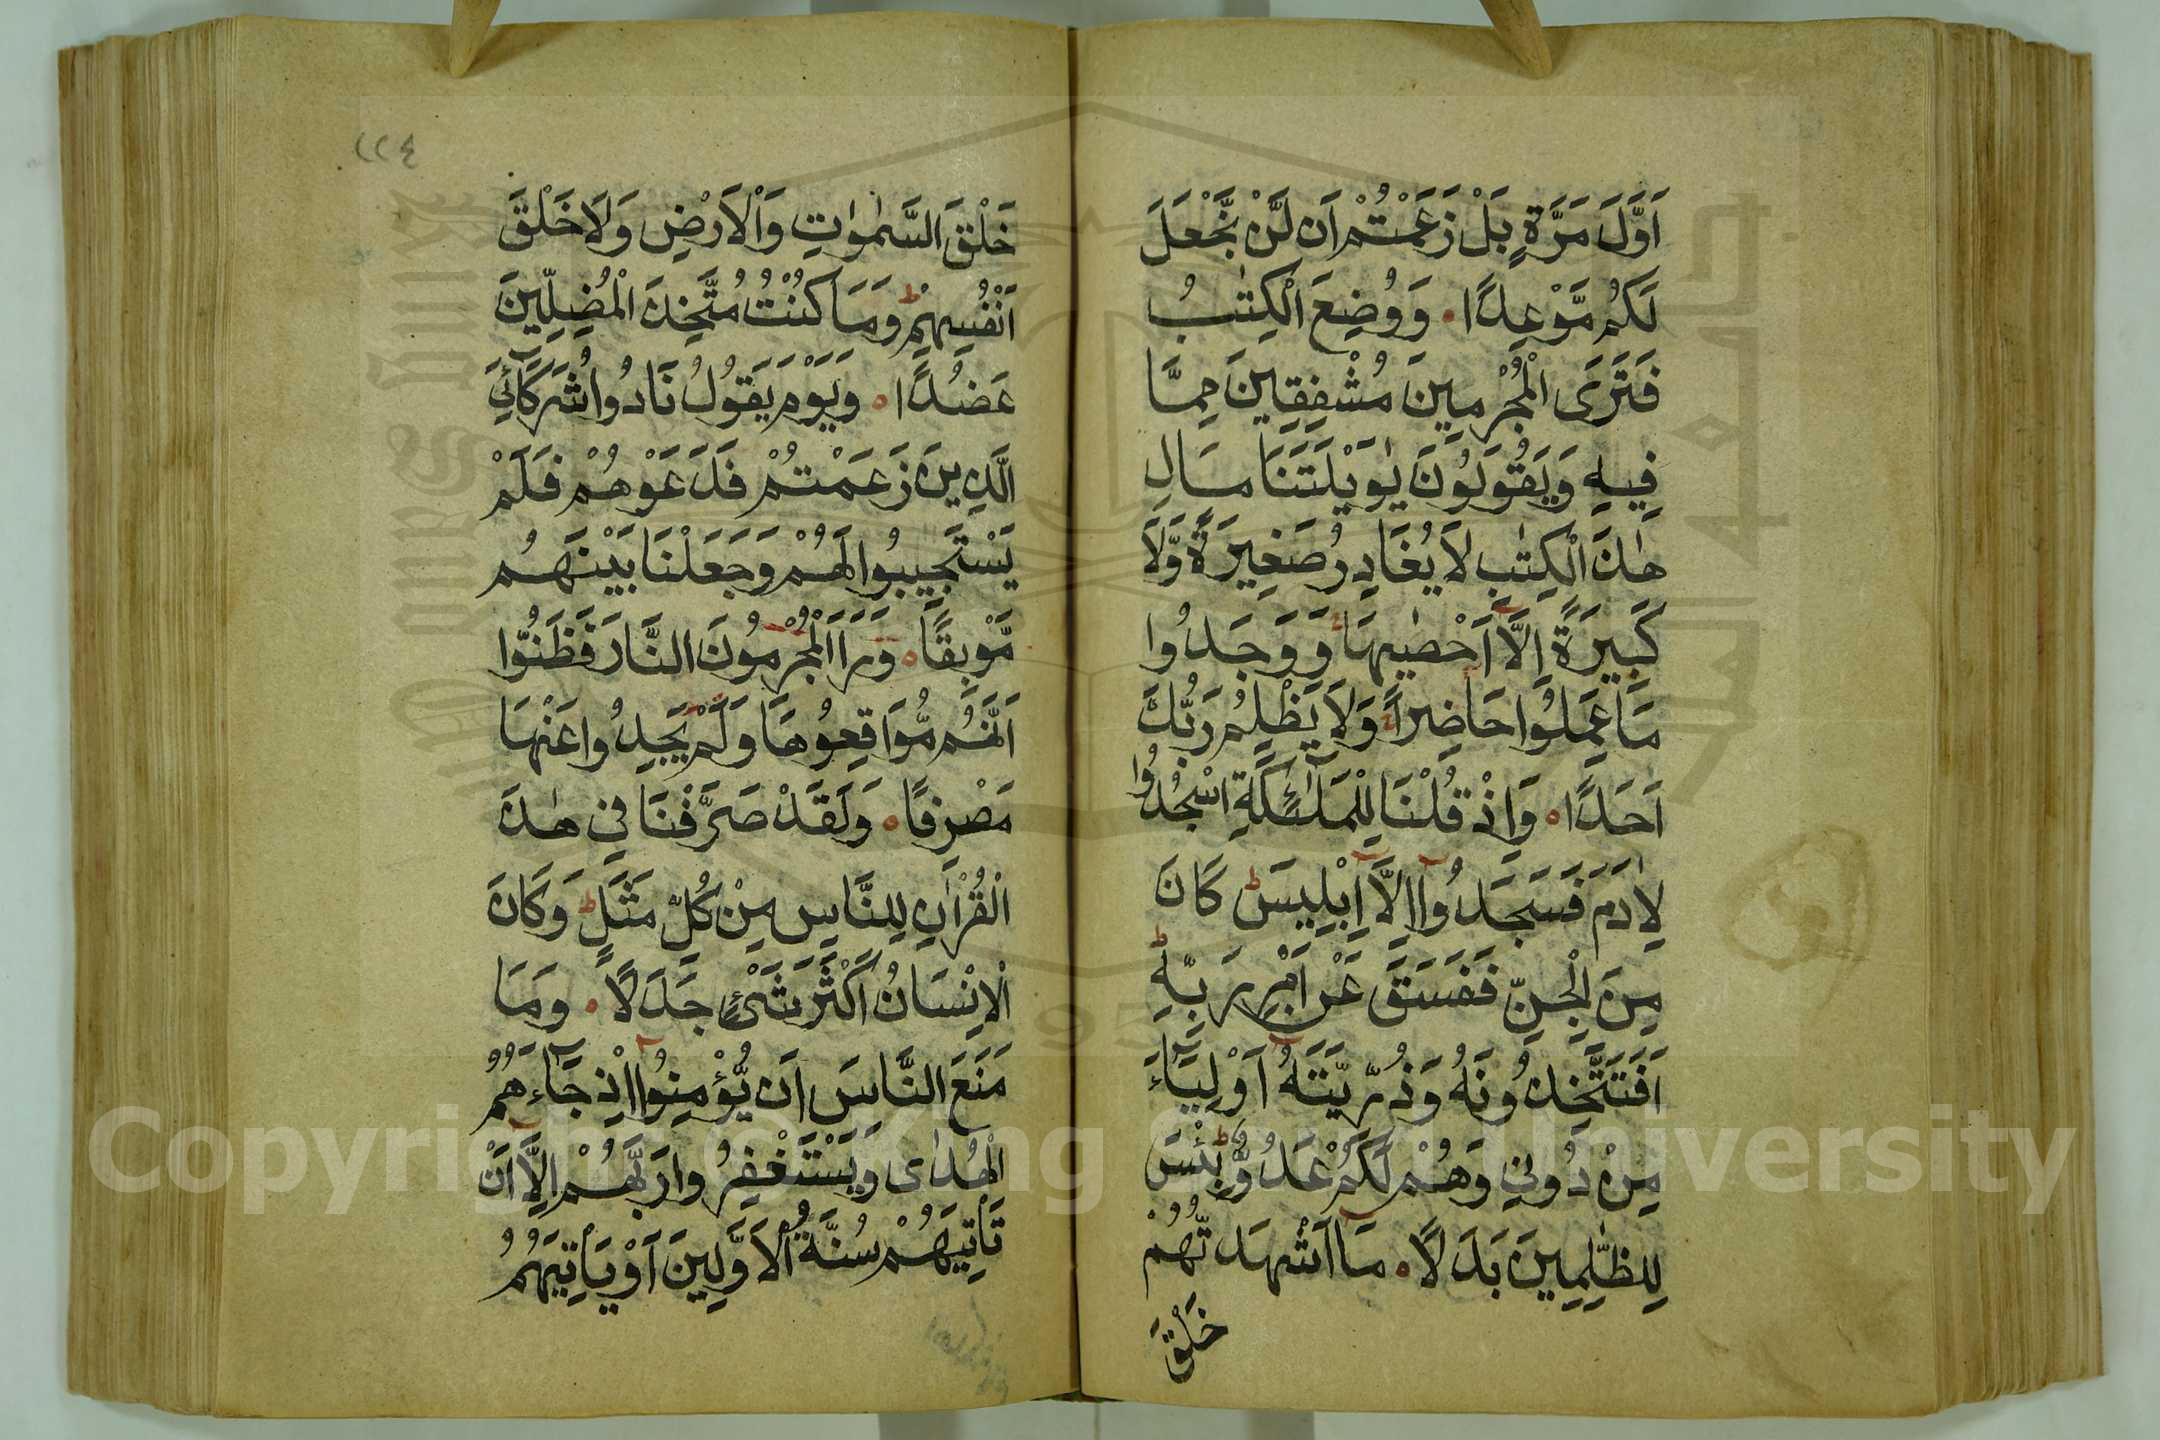 اَوَّلَ مَرَّةٍ بَلْ زَعَمْتُمْ اَن لَّنْ نَّجْعَلَ
لَكُم مَّوْعِدًا ۝ وَوُضِعَ الْكِتٰبُ
فَتَرَى الْمُجْرِمِينَ مُشْفِقِينَ مِمَّا
فِيهِ وَيَقُولُونَ يٰوَيْلَتَنَا مَالِ
هٰذَا الْكِتٰبِ لَا يُغَادِرُ صَغِيرَةً وَّلَا
كَبِيرَةً اِلَّا اَحْصٰىهَا وَوَجَدُوا
مَا عَمِلُوا حَاضِرًا وَلَا يَظْلِمُ رَبُّكَ
اَحَدًا ۝ وَاِذْ قُلْنَا لِلْمَلٰٓئِكَةِ اسْجُدُوا
لِاٰدَمَ فَسَجَدُوٓا اِلَّآ اِبْلِيسَ ط كَانَ
مِنَ الْجِنِّ فَفَسَقَ عَنْ اَمْرِ رَبِّهٖ ط
اَفَتَتَّخِذُونَهُ وَذُرِّيَّتَهُٓ اَوْلِيَآءَ
مِنْ دُونِي وَهُمْ لَكُمْ عَدُوٌّ ط بِئْسَ
لِلظّٰلِمِينَ بَدَلًا ۝ مَآ اَشْهَدتُّهُمْ
خَلْقَ
١٢٤
خَلْقَ السَّمٰوٰتِ وَالْاَرْضِ وَلَا خَلْقَ
اَنْفُسِهِمْ ط وَمَا كُنْتُ مُتَّخِذَ الْمُضِلِّينَ
عَضُدًا ۝ وَيَوْمَ يَقُولُ نَادُوا شُرَكَآئِيَ
الَّذِينَ زَعَمْتُمْ فَدَعَوْهُمْ فَلَمْ
يَسْتَجِيبُوا لَهُمْ وَجَعَلْنَا بَيْنَهُم
مَّوْبِقًا ۝ وَرَاَ الْمُجْرِمُونَ النَّارَ فَظَنُّوٓا
اَنَّهُم مُّوَاقِعُوهَا وَلَمْ يَجِدُوا عَنْهَا
مَصْرِفًا ۝ وَلَقَدْ صَرَّفْنَا فِي هٰذَا
الْقُرْاٰنِ لِلنَّاسِ مِنْ كُلِّ مَثَلٍ ط وَكَانَ
الْاِنْسَانُ اَكْثَرَ شَيْءٍ جَدَلًا ۝ وَمَا
مَنَعَ النَّاسَ اَن يُّؤْمِنُوٓا اِذْ جَآءَهُمُ
الْهُدٰى وَيَسْتَغْفِرُوا رَبَّهُمْ اِلَّآ اَنْ
تَاْتِيَهُمْ سُنَّةُ الْاَوَّلِينَ اَوْ يَاْتِيَهُمُ
Copyright © King Saud University